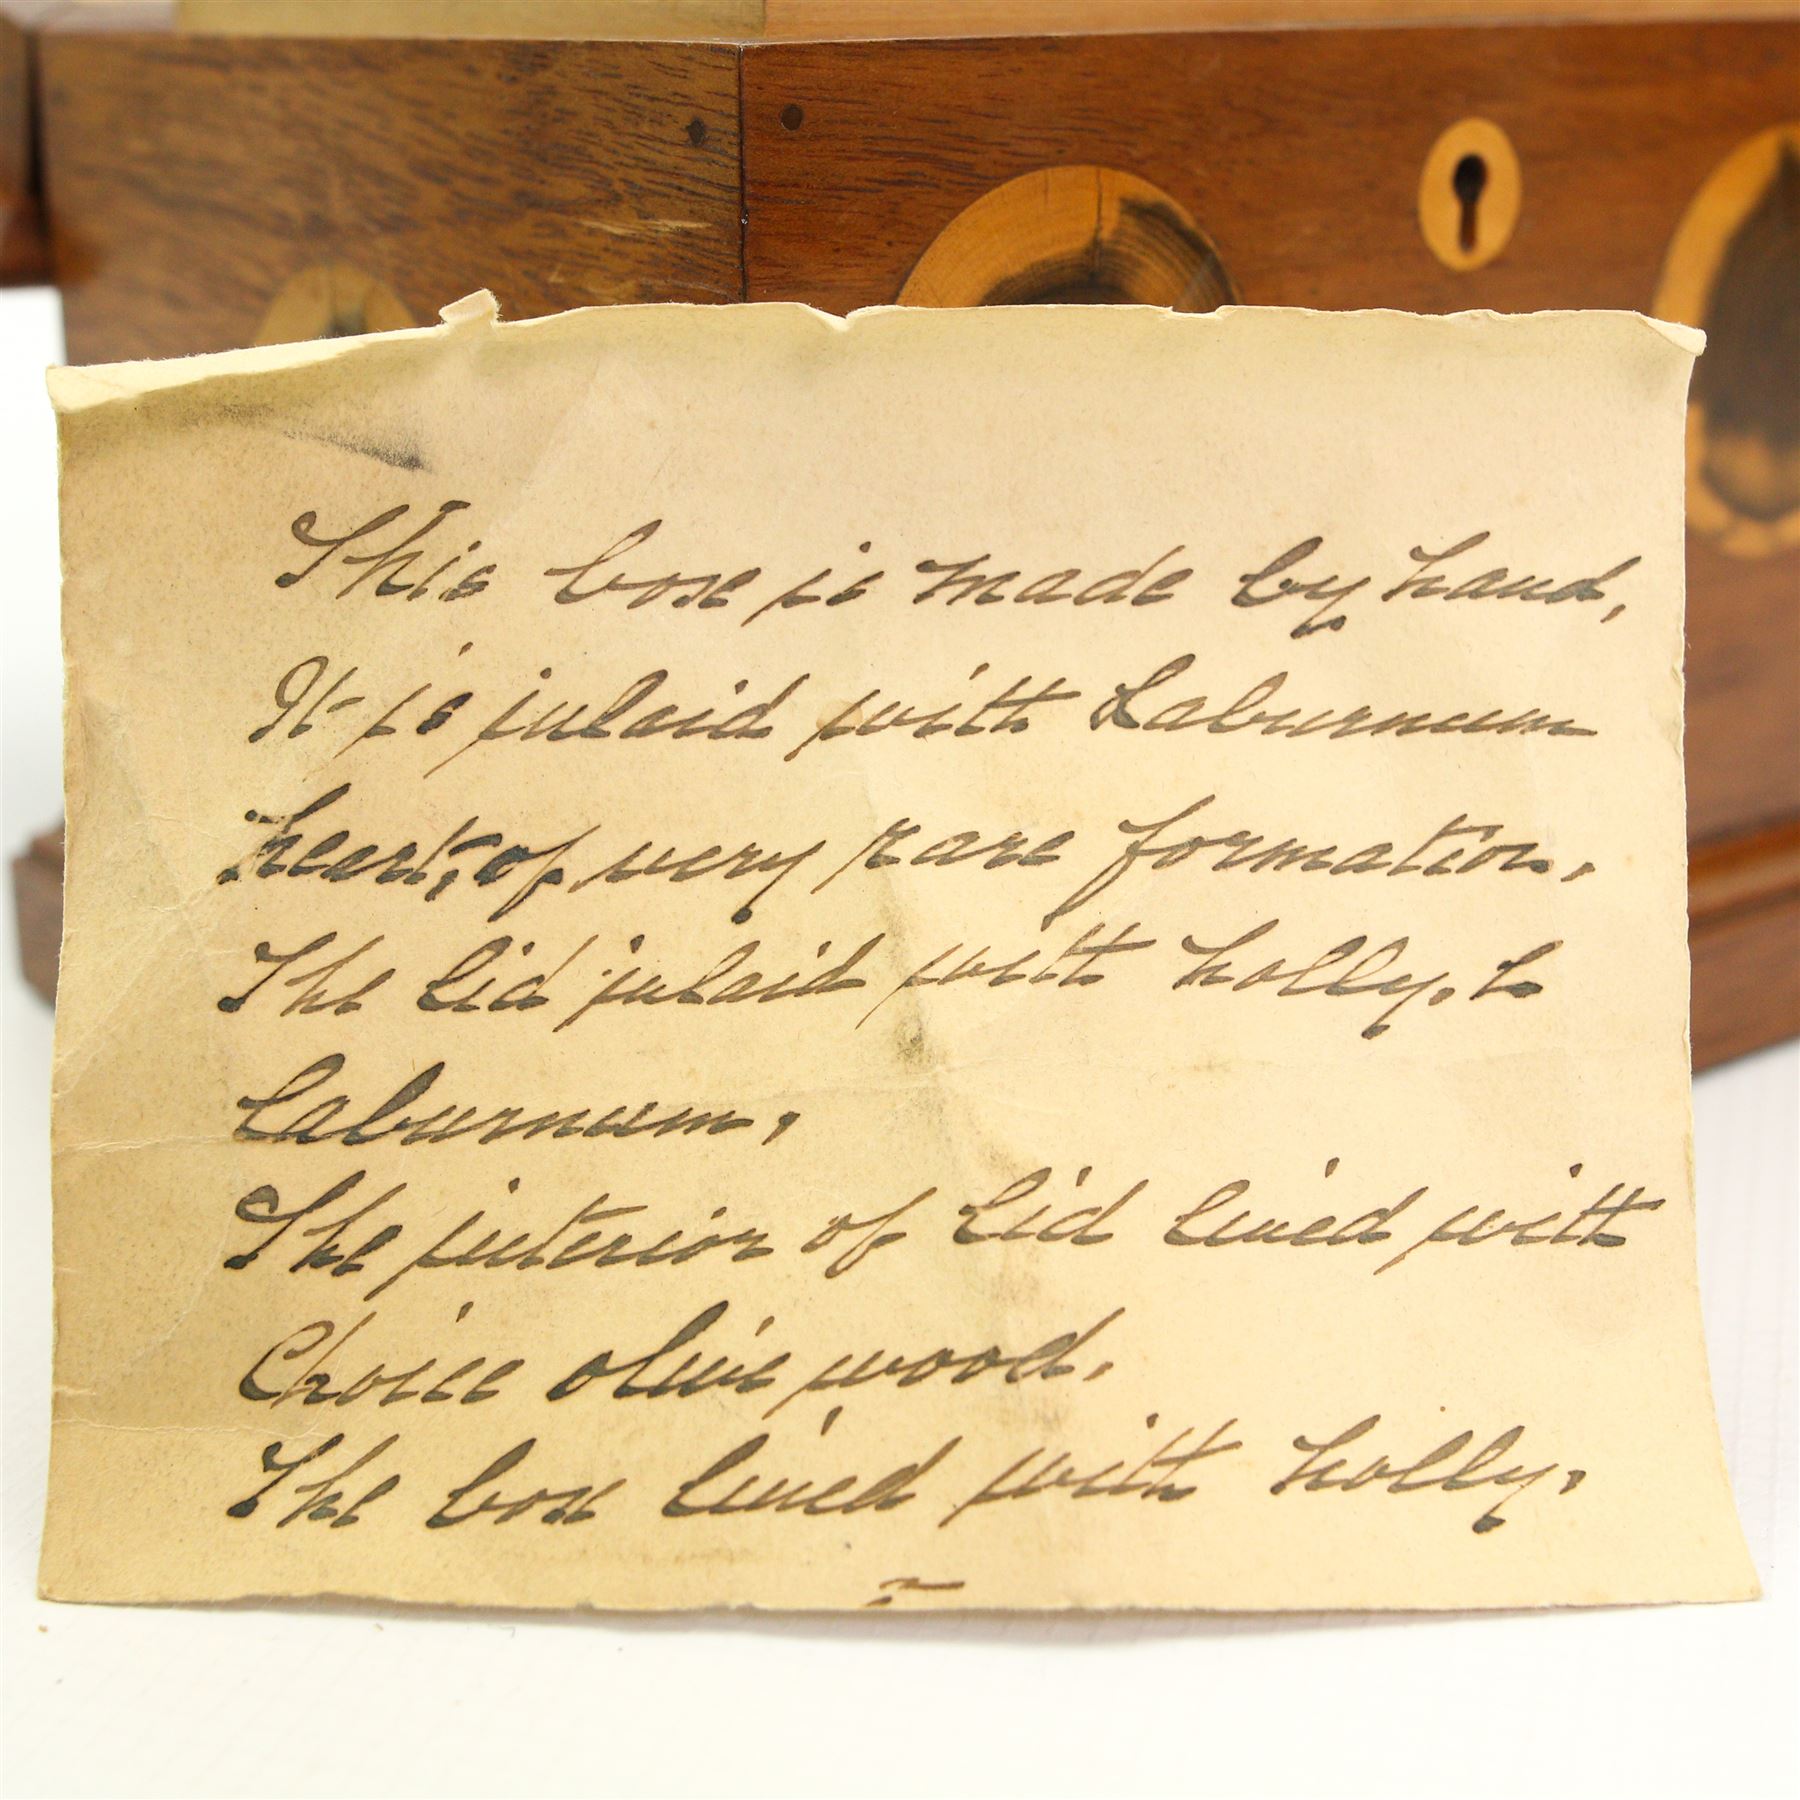 This box is made by hand,
It is inlaid with Laburnum
heart, of very rare formation,
The lid inlaid with holly, &
Laburnum,
The interior of lid lined with
Choice olive wood,
The box lined with holly,